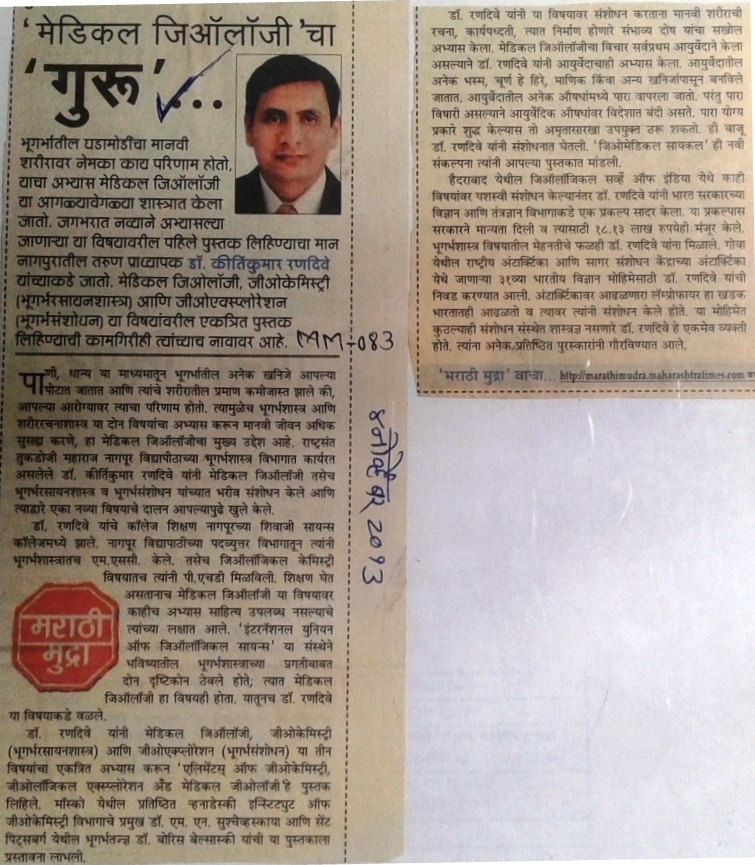 'मेडिकल जिऑलॉजी'चा
'गुरू'...
भूगर्भातील घडामोडींचा मानवी
शरीरावर नेमका काय परिणाम होतो,
याचा अभ्यास मेडिकल जिऑलॉजी
या आगळ्यावेगळ्या शास्त्रात केला
जातो. जगभरात नव्याने अभ्यासल्या
जाणाऱ्या या विषयावरील पहिले पुस्तक लिहिण्याचा मान
नागपुरातील तरुण प्राध्यापक डॉ. कीर्तिकुमार रणदिवे
यांच्याकडे जातो. मेडिकल जिओलॉजी, जीओकेमिस्ट्री
(भूगर्भरसायनशास्त्र) आणि जीओएक्स्प्लोरेशन
(भूगर्भसंशोधन) या विषयांवरील एकत्रित पुस्तक
लिहिण्याची कामगिरीही त्यांच्याच नावावर आहे. MM-083
पाणी, धान्य या माध्यमातून भूगर्भातील अनेक खनिजे आपल्या
पोटात जातात आणि त्यांचे शरीरातील प्रमाण कमीजास्त झाले की,
आपल्या आरोग्यावर त्याचा परिणाम होतो. त्यामुळेच भूगर्भशास्त्र आणि
शरीररचनाशास्त्र या दोन विषयांचा अभ्यास करून मानवी जीवन अधिक
सुसह्य करणे, हा मेडिकल जिऑलॉजीचा मुख्य उद्देश आहे. राष्ट्रसंत
तुकडोजी महाराज नागपूर विद्यापीठाच्या भूगर्भशास्त्र विभागात कार्यरत
असलेले डॉ. कीर्तिकुमार रणदिवे यांनी मेडिकल जिऑलॉजी तसेच
भूगर्भरसायनशास्त्र व भूगर्भसंशोधन यांच्यात भरीव संशोधन केले आणि
त्याद्वारे एका नव्या विषयाचे दालन आपल्यापुढे खुले केले.
डॉ. रणदिवे यांचे कॉलेज शिक्षण नागपूरच्या शिवाजी सायन्स
कॉलेजमध्ये झाले. नागपूर विद्यापाठीच्या पदव्युत्तर विभागातून त्यांनी
भूगर्भशास्त्रातच एम.एससी. केले. तसेच जिऑलॉजिकल केमिस्ट्री
विषयातच त्यांनी पी.एचडी मिळविली. शिक्षण घेत
असतानाच मेडिकल जीऑलॉजी या विषयावर
काहीच अभ्यास साहित्य उपलब्ध नसल्याचे
त्यांच्या लक्षात आले. 'इंटरनॅशनल युनियन
ऑफ जिऑलॉजिकल सायन्स' या संस्थेने
भविष्यातील भूगर्भशास्त्राच्या प्रगतीबाबत
दोन दृष्टिकोन ठेवले होते; त्यात मेडिकल
जिऑलॉजी हा विषयही होता. यातूनच डॉ. रणदिवे
या विषयाकडे वळले.
मराठी
मुद्रा
डॉ. रणदिवे यांनी मेडिकल जिऑलॉजी, जीओकेमिस्ट्री
(भूगर्भरसायनशास्त्र) आणि जीओएक्प्लोरेशन (भूगर्भसंशोधन) या तीन
विषयांचा एकत्रित अभ्यास करून 'एलिमेंटस् ऑफ जीओकेमिस्ट्री,
जीओलॉजिकल एक्स्प्लोरेशन अँड मेडिकल जीओलॉजी'हे पुस्तक
लिहिले. मॉस्को येथील प्रतिष्ठित व्हनाडेस्की इन्स्टिट्युट ऑफ
जीओकेमिस्ट्री विभागाचे प्रमुख डॉ. एम. एन. सुश्चेव्हस्काया आणि सेंट
पिट्सबर्ग येथील भूगर्भतज्ज्ञ डॉ. बोरिस बेल्सास्की यांची या पुस्तकाला
प्रस्तावना लाभली.
डॉ. रणदिवे यांनी या विषयावर संशोधन करताना मानवी शरीराची
रचना, कार्यपध्दती, त्यात निर्माण होणारे संभाव्य दोष यांचा सखोल
अभ्यास केला. मेडिकल जिऑलॉजीचा विचार सर्वप्रथम आयुर्वेदाने केला
असल्याने डॉ. रणदिवे यांनी आयुर्वेदाचाही अभ्यास केला. आयुर्वेदातील
अनेक भस्म, चूर्ण हे हिरे, माणिक किंवा अन्य खनिजांपासून बनविले
जातात. आयुर्वेदातील अनेक औषधांमध्ये पारा वापरला जातो. परंतु पारा
विषारी असल्याने आयुर्वेदिक औषधांवर विदेशात बंदी असते. पारा योग्य
प्रकारे शुद्ध केल्यास तो अमृतासारखा उपयुक्त ठरू शकतो. ही बाजू
डॉ. रणदिवे यांनी संशोधनात घेतली. 'जिओमेडिसिनल सायकल' ही नवी
संकल्पना त्यांनी आपल्या पुस्तकात मांडली.
हैदराबाद येथील जिऑलॉजिकल सर्व्हे ऑफ इंडिया येथे काही
विषयांवर यशस्वी संशोधन केल्यानंतर डॉ. रणदिवे यांनी भारत सरकारच्या
विज्ञान आणि तंत्रज्ञान विभागाकडे एक प्रकल्प सादर केला. या प्रकल्पास
सरकारने मान्यता दिली व त्यासाठी १८.१३ लाख रुपयेही मंजूर केले.
भूगर्भशास्त्र विषयातील मेहनतीचे फळही डॉ. रणदिवे यांना मिळाले. गोवा
येथील राष्ट्रीय अंटार्क्टिका आणि सागर संशोधन केंद्राच्या अंटार्क्टिका
येथे जाणाऱ्या ३१व्या भारतीय विज्ञान मोहिमेसाठी डॉ. रणदिवे यांची
निवड करण्यात आली. अंटार्क्टिकावर आढळणारा लॅम्प्रोफायर हा खडक
भारतातही आढळतो व त्यावर त्यांनी संशोधन केले होते. या मोहिमेत
कुठल्याही संशोधन संस्थेत शास्त्रज्ञ नसणारे डॉ. रणदिवे हे एकमेव व्यक्ती
होते. त्यांना अनेक प्रतिष्ठित पुरस्कारांनी गौरविण्यात आले.
'मराठी मुद्रा' वाचा... http://marathimudra.maharashtratimes.com
४ नोव्हेंबर 2013